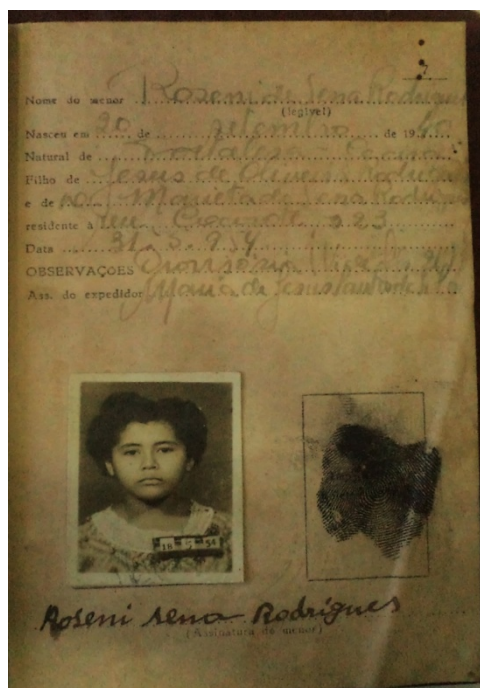 7
Nome do menor Roseni de Sena Rodrigues
(legivel)
Nasceu em 20 de setembro de 1940
Natural de Fortaleza Ceará
Filho de Jesus de Oliveira Rodrigues
e de Maria de Sena Rodrigues
residente à 223
Data 31.5.954
OBSERVAÇÕES
Ass. do expedidor Maria de Jesus
18 5 54
Roseni Sena Rodrigues
(Assinatura do menor)